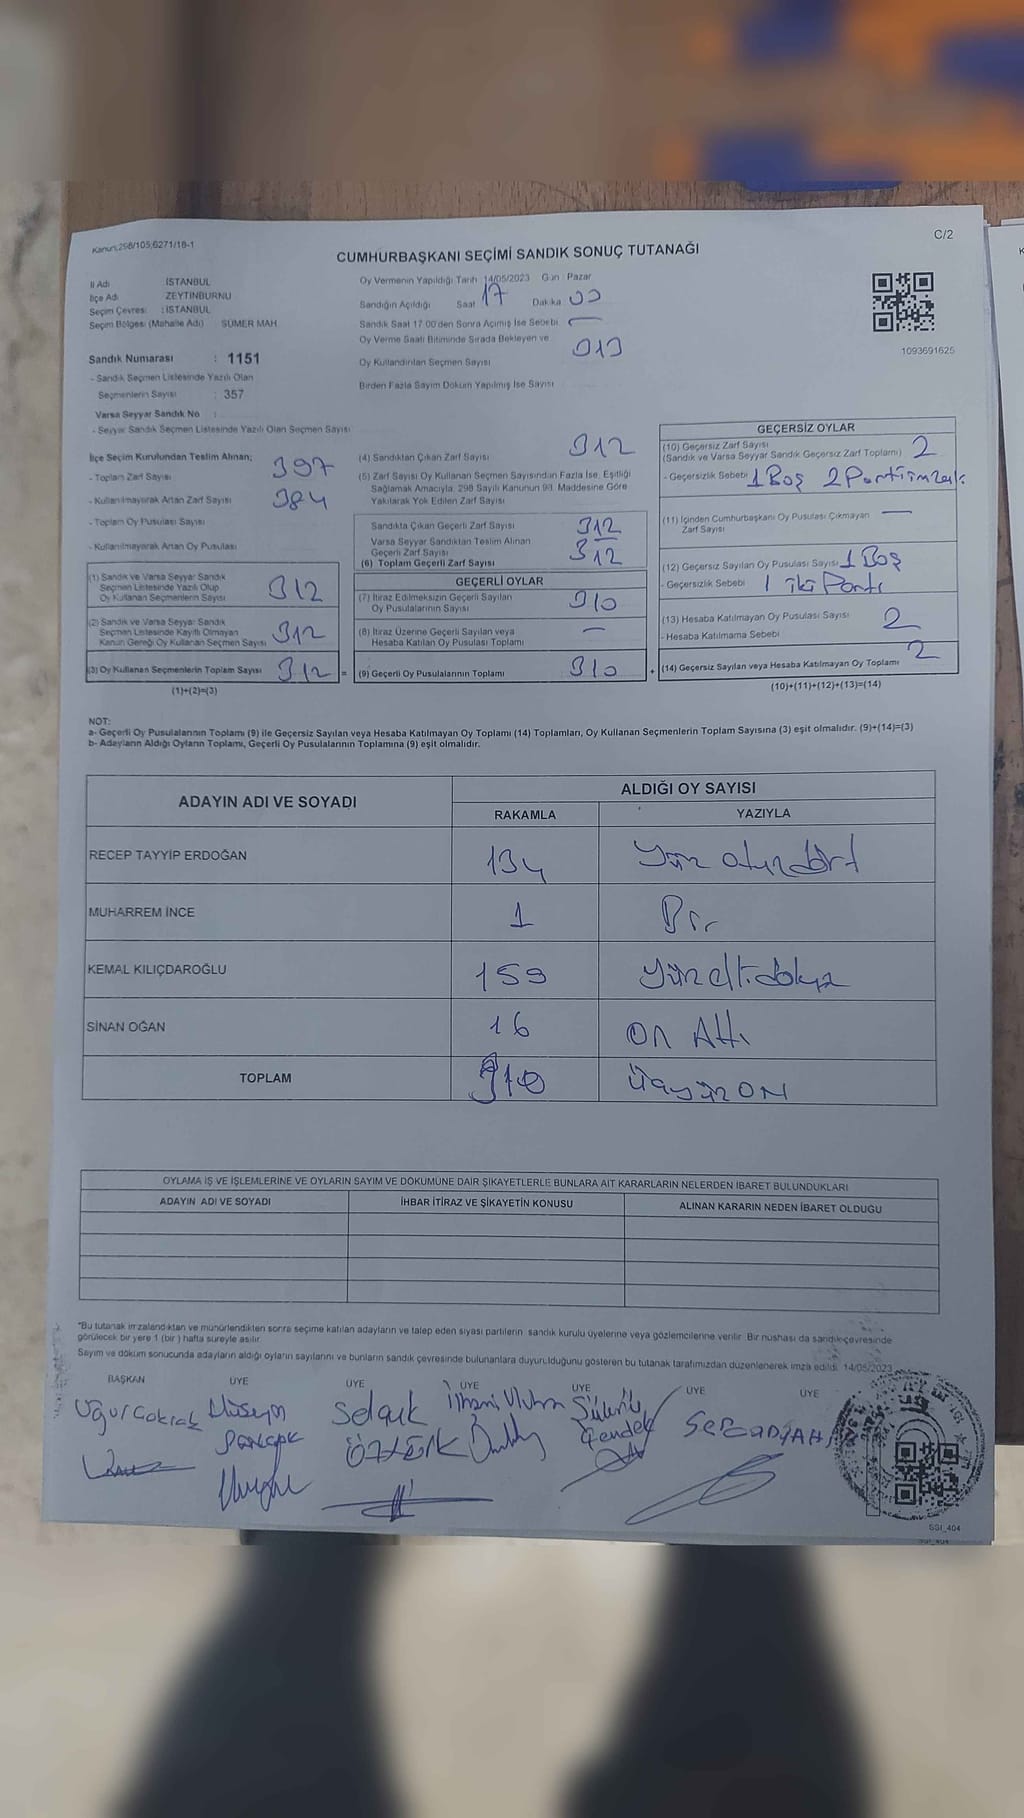 Kanun;298/105,6271/18-1
C/2
CUMHURBAŞKANI SEÇİMİ SANDIK SONUÇ TUTANAĞI
İl Adı İSTANBUL
İlçe Adı ZEYTİNBURNU
Seçim Çevresi : İSTANBUL
Seçim Bölgesi (Mahalle Adı) SÜMER MAH
Sandık Numarası : 1151
- Sandık Seçmen Listesinde Yazılı Olan
Seçmenlerin Sayısı : 357
Varsa Seyyar Sandık No :
- Seyyar Sandık Seçmen Listesinde Yazılı Olan Seçmen Sayısı
Oy Vermenin Yapıldığı Tarih 14/05/2023 Gün : Pazar
Sandığın Açıldığı Saat 17 Dakika 00
Sandık Saat 17 00'den Sonra Açımış İse Sebebi
Oy Verme Saati Bitiminde Sırada Bekleyen ve
Oy Kullandırılan Seçmen Sayısı
Birden Fazla Sayım Döküm Yapılmış İse Sayısı
1093691625
İlçe Seçim Kurulundan Teslim Alınan;
- Toplam Zarf Sayısı 397
- Kullanılmayarak Artan Zarf Sayısı 384
- Toplam Oy Pusulası Sayısı
- Kullanılmayarak Artan Oy Pusulası
(1) Sandık ve Varsa Seyyar Sandık
Seçmen Listesinde Yazılı Olup
Oy Kullanan Seçmenlerin Sayısı 312
(2) Sandık ve Varsa Seyyar Sandık
Seçmen Listesinde Kayıtlı Olmayan
Kanun Gereği Oy Kullanan Seçmen Sayısı 312
(3) Oy Kullanan Seçmenlerin Toplam Sayısı 312 =
(1)+(2)=(3)
(4) Sandıktan Çıkan Zarf Sayısı 312
(5) Zarf Sayısı Oy Kullanan Seçmen Sayısından Fazla İse, Eşitliği
Sağlamak Amacıyla, 298 Sayılı Kanunun 98. Maddesine Göre
Yakılarak Yok Edilen Zarf Sayısı
Sandıkta Çıkan Geçerli Zarf Sayısı 312
Varsa Seyyar Sandıktan Teslim Alınan
Geçerli Zarf Sayısı
(6) Toplam Geçerli Zarf Sayısı 312
GEÇERLİ OYLAR
(7) İtiraz Edilmeksizin Geçerli Sayılan
Oy Pusulalarının Sayısı 310
(8) İtiraz Üzerine Geçerli Sayılan veya
Hesaba Katılan Oy Pusulası Toplamı —
(9) Geçerli Oy Pusulalarının Toplamı 310 +
GEÇERSİZ OYLAR
(10) Geçersiz Zarf Sayısı
(Sandık ve Varsa Seyyar Sandık Geçersiz Zarf Toplamı) 2
- Geçersizlik Sebebi 1 Boş 2 Parti
(11) İçinden Cumhurbaşkanı Oy Pusulası Çıkmayan
Zarf Sayısı —
(12) Geçersiz Sayılan Oy Pusulası Sayısı 1 Boş
- Geçersizlik Sebebi 1 iki Parti
(13) Hesaba Katılmayan Oy Pusulası Sayısı 2
- Hesaba Katılmama Sebebi
(14) Geçersiz Sayılan veya Hesaba Katılmayan Oy Toplamı 2
(10)+(11)+(12)+(13)=(14)
NOT:
a- Geçerli Oy Pusulalarının Toplamı (9) ile Geçersiz Sayılan veya Hesaba Katılmayan Oy Toplamı (14) Toplamları, Oy Kullanan Seçmenlerin Toplam Sayısına (3) eşit olmalıdır. (9)+(14)=(3)
b- Adayların Aldığı Oyların Toplamı, Geçerli Oy Pusulalarının Toplamına (9) eşit olmalıdır.
ADAYIN ADI VE SOYADI ALDIĞI OY SAYISI
RAKAMLA YAZIYLA
RECEP TAYYİP ERDOĞAN 134 Yüz otuzdört
MUHARREM İNCE 1 Bir
KEMAL KILIÇDAROĞLU 159 Yüz
SİNAN OĞAN 16 on Altı
TOPLAM 310 üçyüz ON
OYLAMA İŞ VE İŞLEMLERİNE VE OYLARIN SAYIM VE DÖKÜMÜNE DAİR ŞİKAYETLERLE BUNLARA AİT KARARLARIN NELERDEN İBARET BULUNDUKLARI
ADAYIN ADI VE SOYADI İHBAR İTİRAZ VE ŞİKAYETİN KONUSU ALINAN KARARIN NEDEN İBARET OLDUĞU
*Bu tutanak imzalandıktan ve mühürlendikten sonra seçime katılan adayların ve talep eden siyası partilerin sandık kurulu üyelerine veya gözlemcilerine verilir. Bir nüshası da sandık çevresinde
görülecek bir yere 1 (bir ) hafta süreyle asılır.
Sayım ve döküm sonucunda adayların aldığı oyların sayılarını ve bunların sandık çevresinde bulunanlara duyurulduğunu gösteren bu tutanak tarafımızdan düzenlenerek imza edildi. 14/05/2023
BAŞKAN ÜYE ÜYE ÜYE ÜYE ÜYE ÜYE
Uğur Hüseyin Selçuk İlhami
ÖZTÜRK
SGI_404